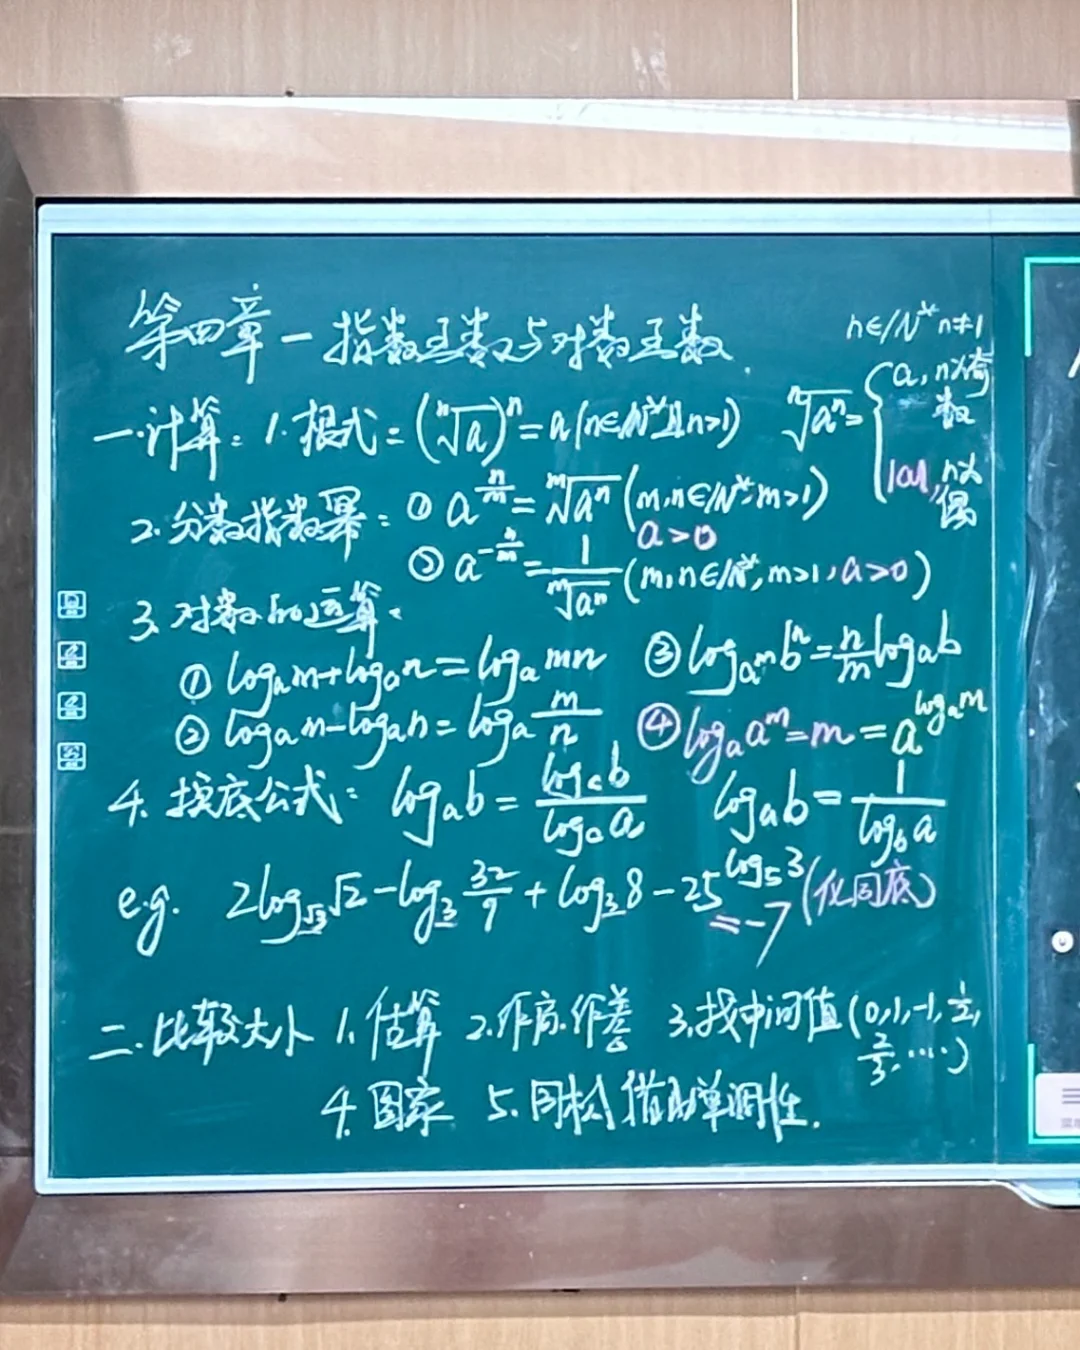 第四章-指数函数与对数函数.
n∈N* n≠1
一.计算: 1.根式: (ⁿ√a)ⁿ=a(n∈N*且n>1) ⁿ√aⁿ={a, n为奇数
|a|, n为偶
2.分数指数幂: ① a^(n/m)=ᵐ√aⁿ(m,n∈N*,m>1)
a>0
② a^(-n/m)=1/ᵐ√aⁿ(m,n∈N*,m>1,a>0)
3.对数的运算:
① logₐm+logₐn=logₐmn ③ log_(a^m) bⁿ=n/m logₐb
② logₐm-logₐn=logₐ m/n ④ logₐaᵐ=m=a^(logₐm)
4.换底公式: logₐb=log_c b/log_c a logₐb=1/log_b a
e.g. 2log_√3 √2-log₃ 32/9+log₃8-25^(log₅3)(化同底)
=-7
二.比较大小 1.估算 2.作商.作差 3.找中间值(0,1,-1,1/2,
2/3.....)
4.图象 5.同构借助单调性.